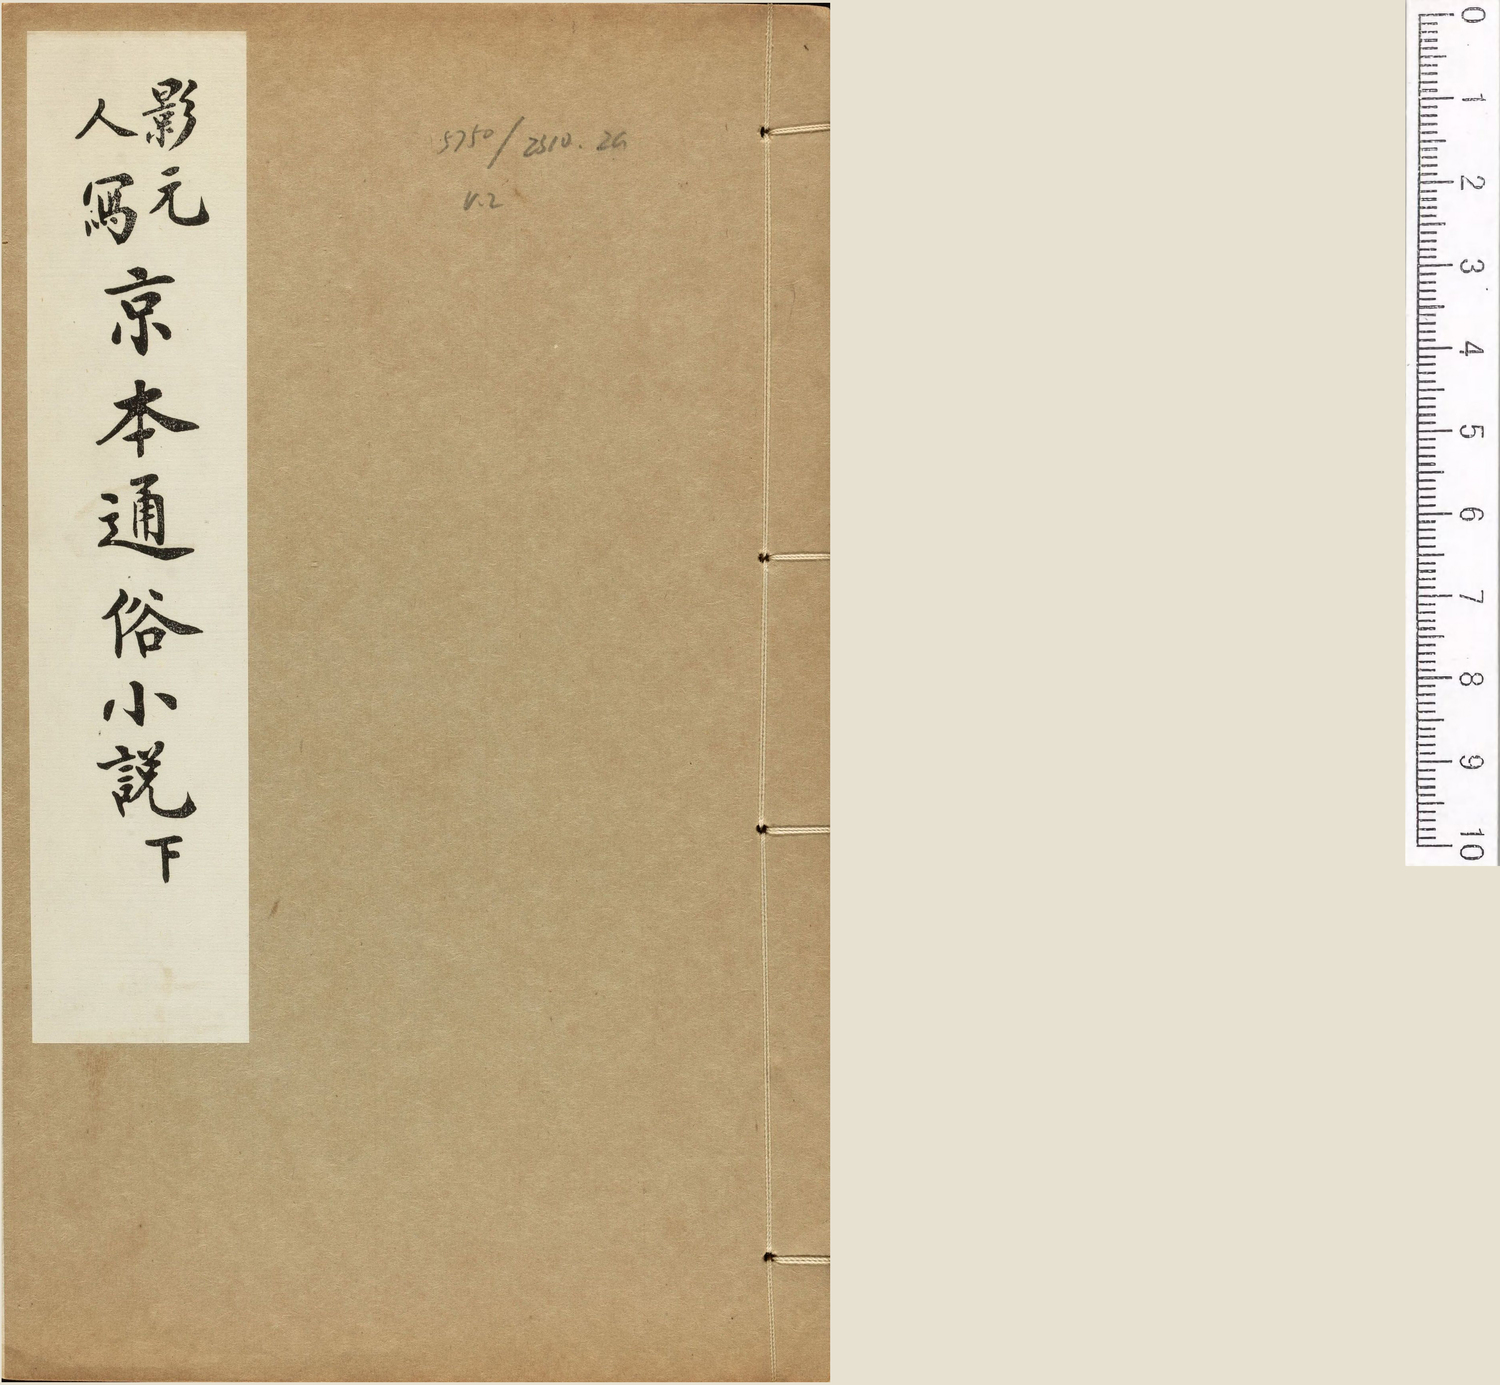 影元
人寫
京本通俗小説下
5750/2510.2a
v.2
0 1 2 3 4 5 6 7 8 9 10